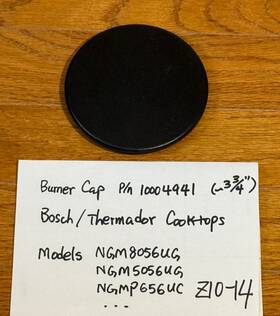 Burner Cap P/n 10004941 (~3 3/4")
Bosch/Thermador Cooktops
Models NGM8056UG
NGM5056UG
NGMP656UC Z10-14
...